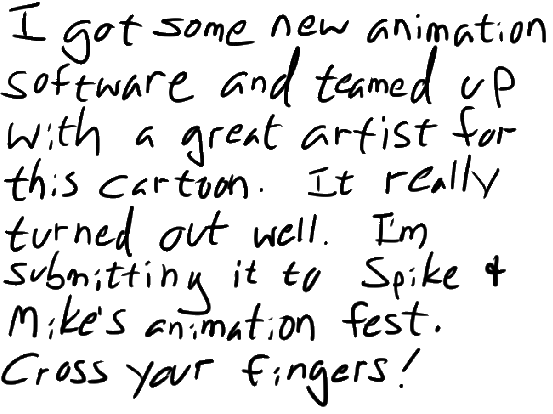 I got some new animation
software and teamed up
with a great artist for
this cartoon. It really
turned out well. I'm
submitting it to Spike &
Mike's animation fest.
Cross your fingers!